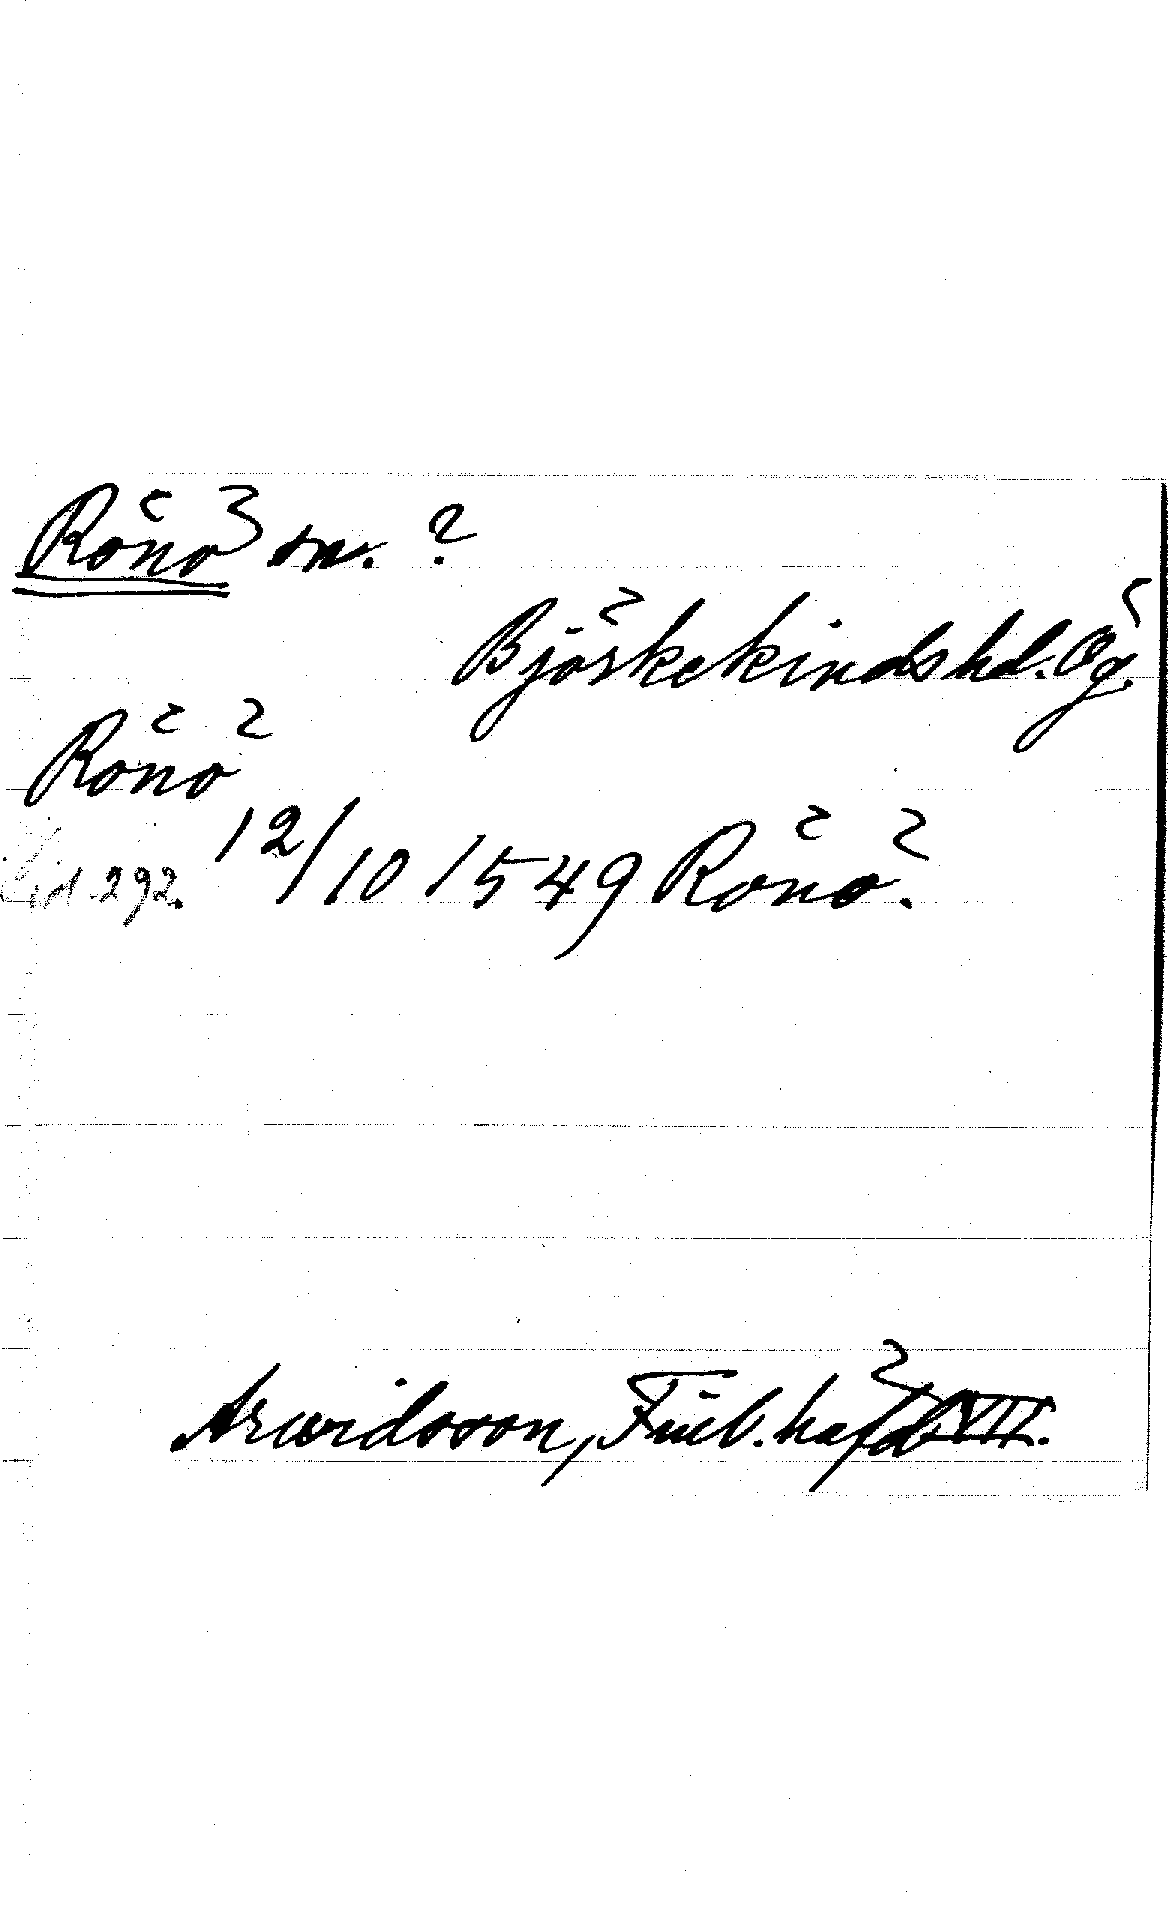 Rönö sn. ?
Björkekinds hd. Ög.
Rönö
Sid 292. 12/10 1549 Rönö.
Arwidsson, Finl. häfd. VII.